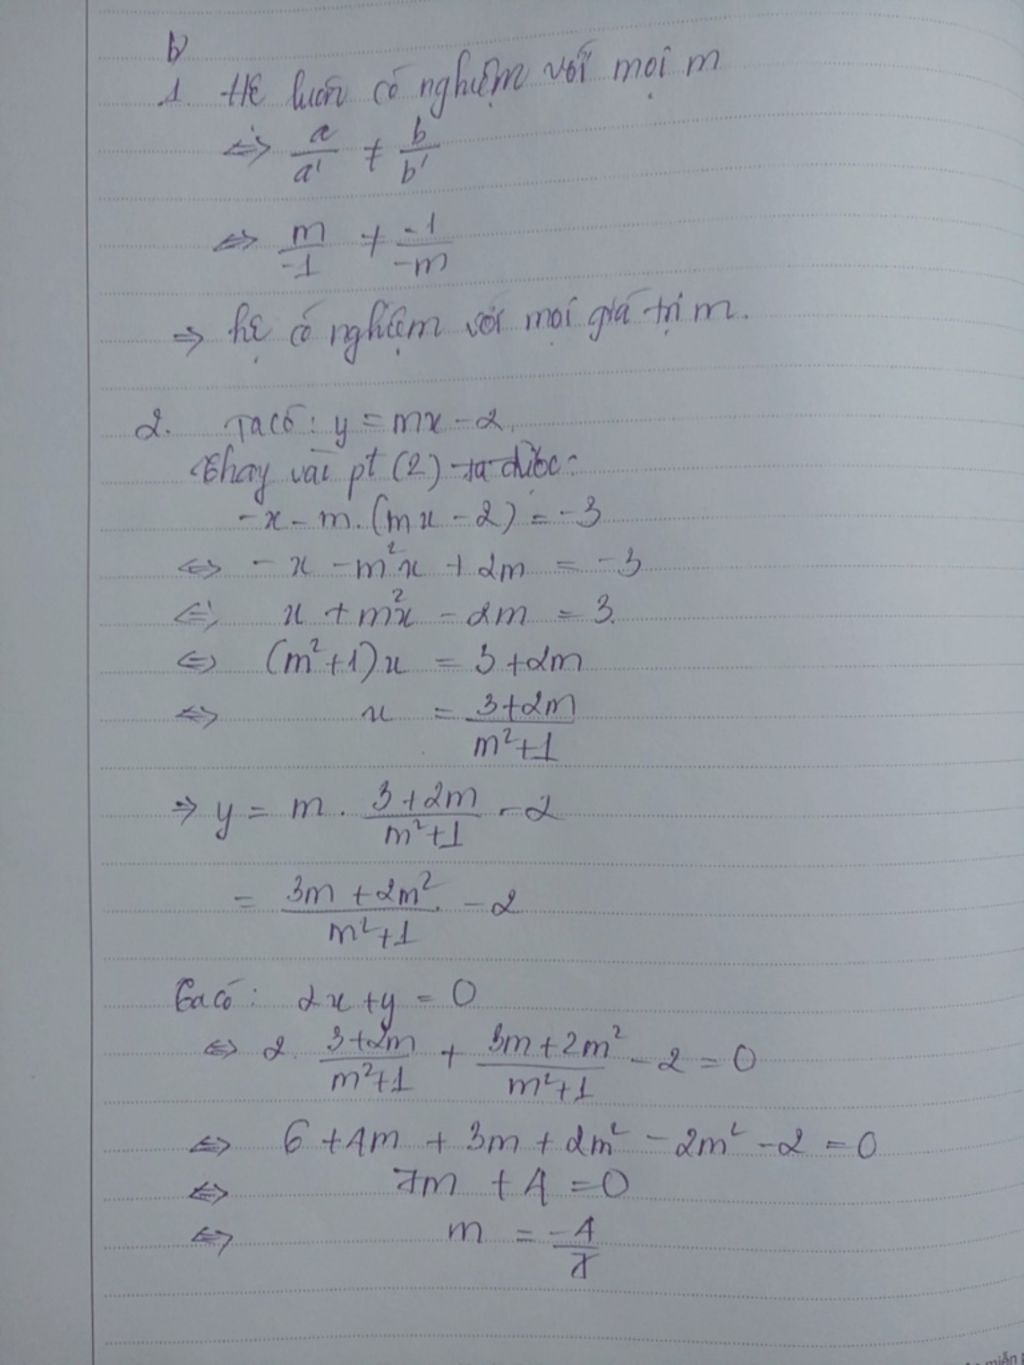 b
1. Hệ luôn có nghiệm với mọi m
⇔ a/a' ≠ b/b'
⇔ m/-1 ≠ -1/-m
⇒ hệ có nghiệm với mọi giá trị m.
2. Ta có: y = mx - 2.
Thay vài pt (2) ta được:
-x - m.(mx - 2) = -3
⇔ -x - m²x + 2m = -3
⇔ x + m²x - 2m = 3.
⇔ (m²+1)x = 3+2m
⇔ x = 3+2m/m²+1
⇒ y = m . 3+2m/m²+1 - 2
= 3m + 2m²/m²+1 - 2
Ta có: 2x+y = 0
⇔ 2. 3+2m/m²+1 + 3m+2m²/m²+1 - 2 = 0
⇔ 6 + 4m + 3m + 2m² - 2m² - 2 = 0
⇔ 7m + 4 = 0
⇔ m = -4/7